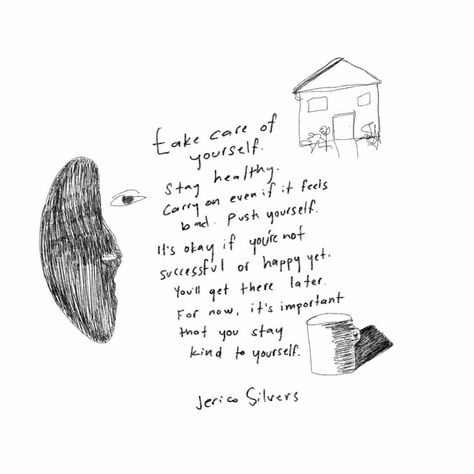 take care of
yourself.
Stay healthy.
Carry on even if it feels
bad. Push yourself.
It's okay if you're not
successful or happy yet.
You'll get there later.
For now, it's important
that you stay
kind to yourself.
Jerico Silvers